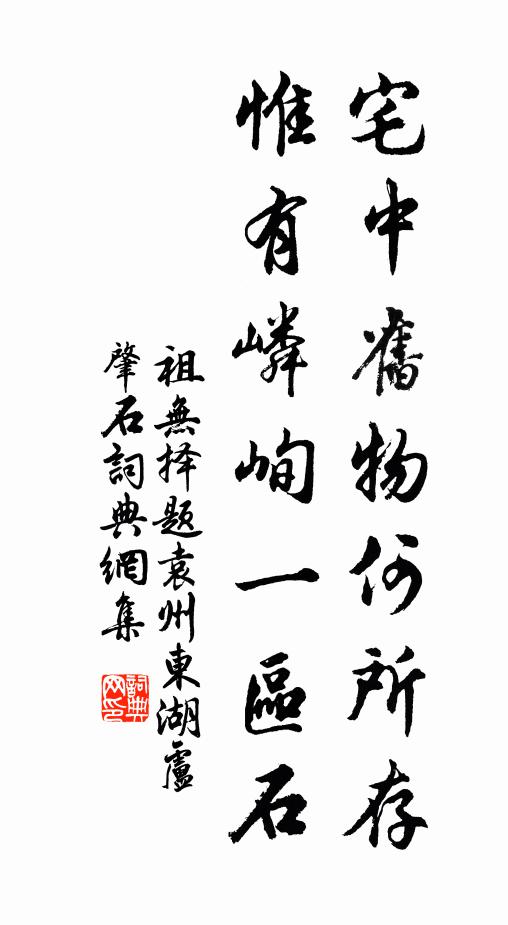 宅中舊物何所存
惟有嶙峋一區石
祖無择题袁州東湖盧
肇石詞典網集
詞典
网印